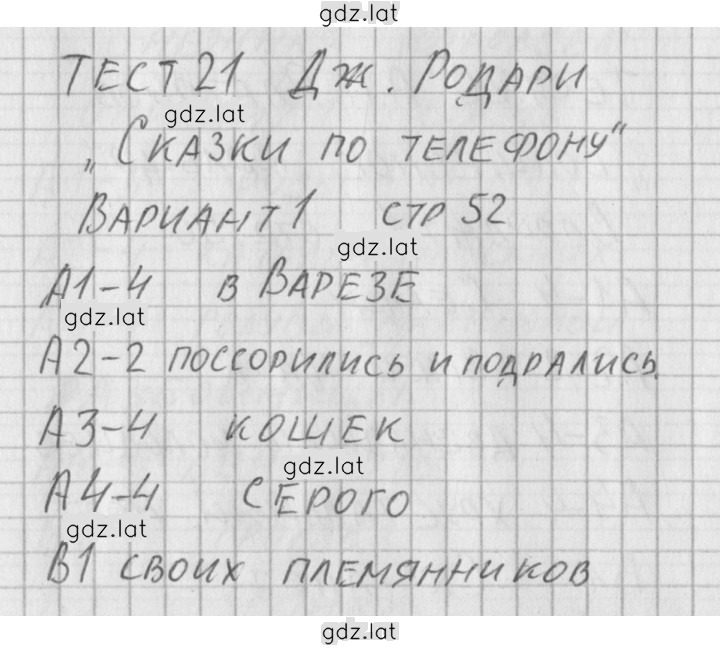 gdz.lat
ТЕСТ 21 Дж. Родари
gdz.lat
„Сказки по телефону“
Вариант 1 стр 52
gdz.lat
А1-4 в Варезе
gdz.lat
А2-2 поссорились и подрались.
А3-4 кошек
gdz.lat
А4-4 серого
gdz.lat
В1 своих племянников
gdz.lat